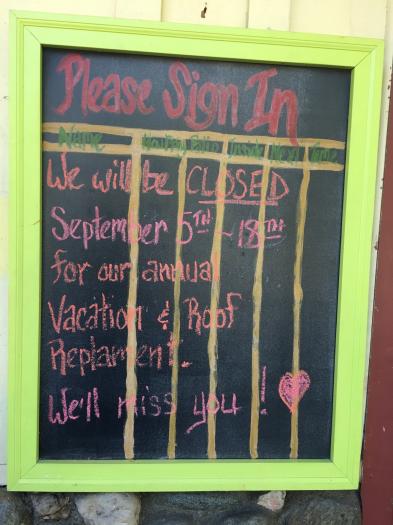 Please Sign In
Name Waiting Patio Inside Next Time
We will be CLOSED
September 5TH - 18TH
for our annual
Vacation & Roof
Replament.
We'll miss you!